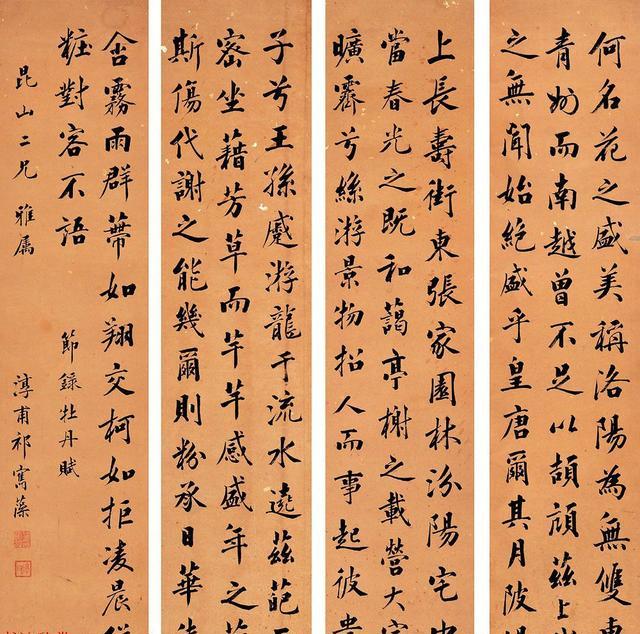 何名花之盛美稱洛陽為無雙東
青州而南越曾不足以頡頏茲上
之無聞始絕盛乎皇唐爾其月陂
上長壽街東張家園林汾陽宅
當春光之既和藹亭榭之載營大
曠霽兮絲游景物招人而事起彼
子兮王孫蹙游龍于流水遶茲葩
密坐藉芳草而芊芊感盛年之
斯傷代謝之能幾爾則粉承日華
含霧雨群蔕如翔交柯如拒凌晨
粧對客不語 節錄牡丹賦
昆山二兄雅屬 淳甫祁寯藻